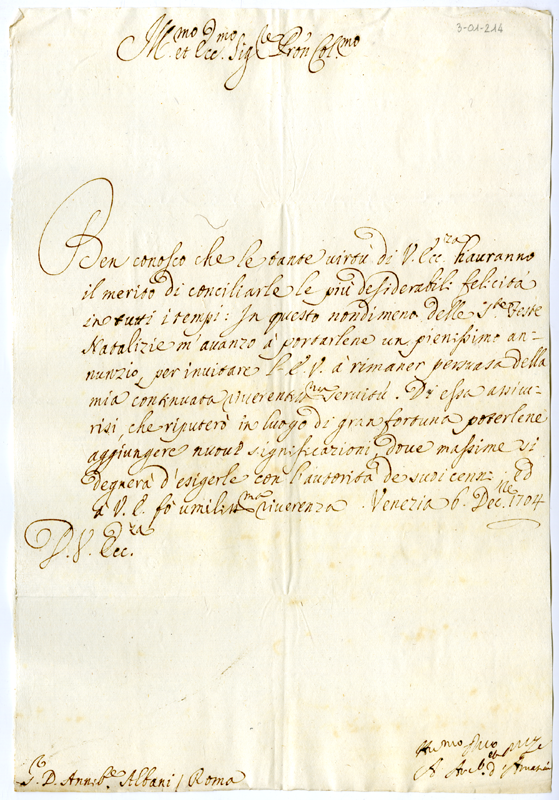 3-01-214
Ill.mo et Ecc.mo Sig.re Pron Col.mo
Ben conosco che le tante virtù di V. Ecc.za hauranno
il merito di conciliarle le più desiderabili felicità
in tutti i tempi: In questo nondimeno delle S.te Feste
Natalizie m'avanzo à portarlene un pienissimo an-
nunzio, per invitare l'E. V. à rimaner persuasa della
mia continuata riverentiss.ma servitù. Di essa assicu-
risi che riputerò in luogo di gran fortuna poterlene
aggiungere nuove significazioni, dove massime si
degnerà d'esigerle con l'autorità de suoi cenni. Ed
à V. E. fò umiliss.ma riverenza. Venezia 6. Dec.bre 1704
D. V. Ecc.za
S.r D. Annib.e Albani / Roma